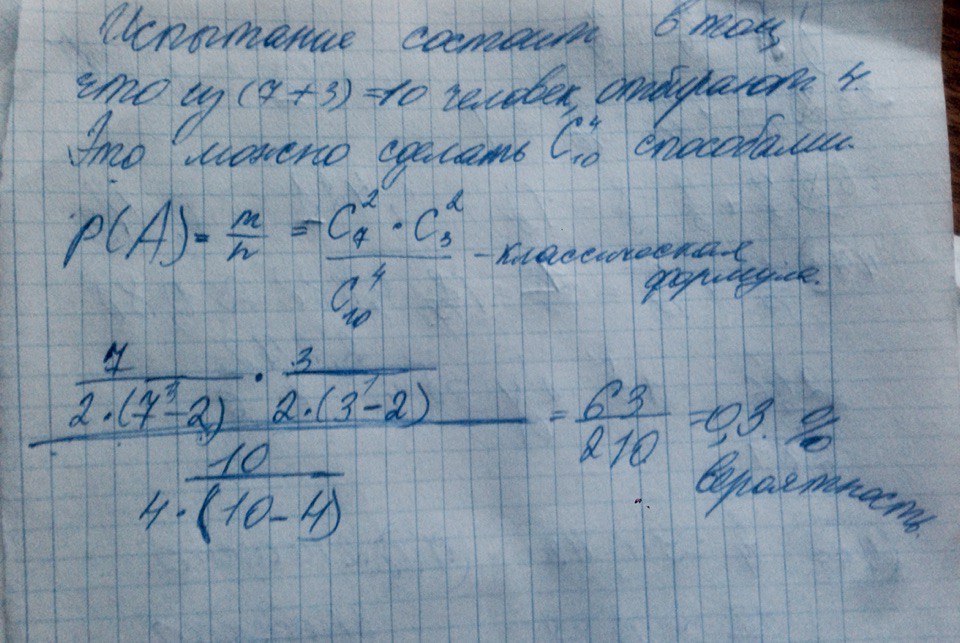 Испытание состоит в том,
что из (7+3) =10 человек отбирают 4.
Это можно сделать C₁₀⁴ способами.
P(A) = m/n = C₇² · C₃² / C₁₀⁴ - классическая
формула.
7 / 2·(7-2) · 3 / 2·(3-2)
10 / 4·(10-4)
= 63/210 = 0,3. %
вероятность.